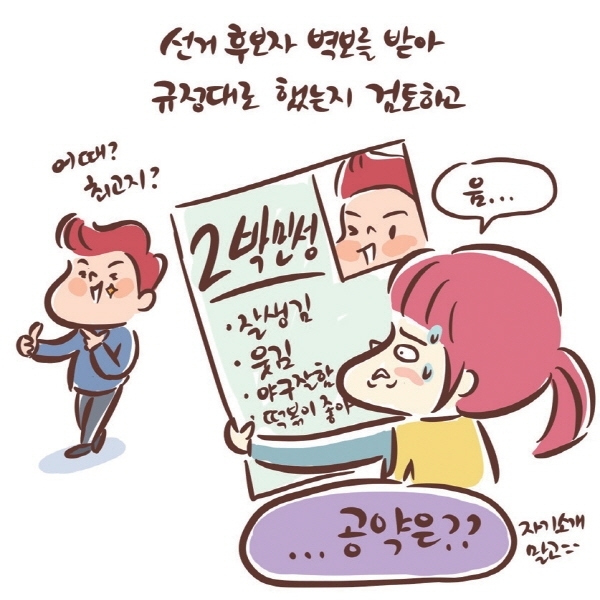 선거 후보자 벽보를 받아
규정대로 했는지 검토하고
어때?
최고지?
음...
2 박민성
· 잘생김
· 웃김
· 야구잘함
· 떡볶이 좋아
... 공약은??
자기소개
말고;;